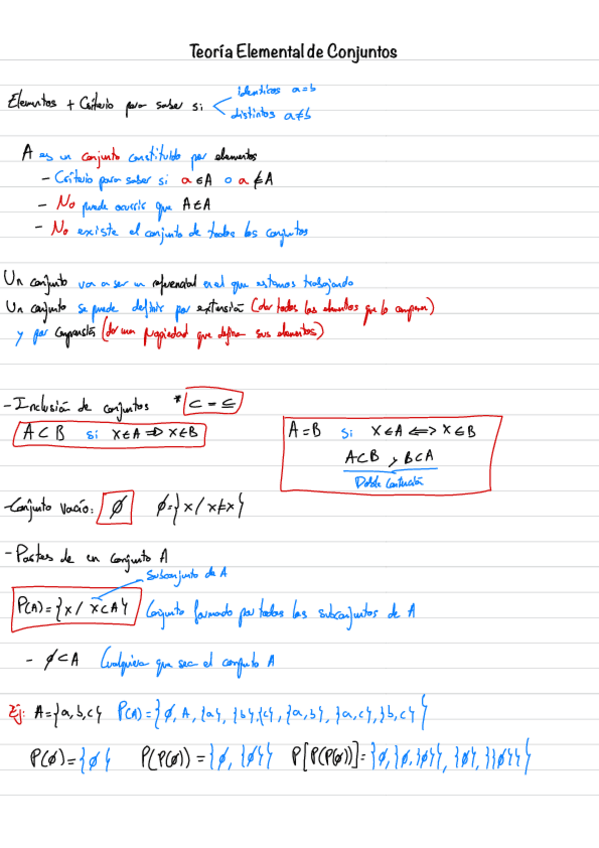 Teoría Elemental de Conjuntos
Elementos + Criterio para saber si
identicos a=b
distintos a≠b
A es un conjunto constituido por elementos
- Criterio para saber si a∈A o a∉A
- No puede ocurrir que A∈A
- No existe el conjunto de todos los conjuntos
Un conjunto va a ser un referencial en el que estamos trabajando
Un conjunto se puede definir por extensión (dar todos los elementos que lo componen)
y por comprensión (dar una propiedad que definan sus elementos)
- Inclusión de conjuntos * ⊂ = ⊆
A⊂B si x∈A ⇒ x∈B
A=B si x∈A ⟺ x∈B
A⊂B y B⊂A
Doble contención
- Conjunto vacío: ∅ ∅={x/x≠x}
- Partes de un conjunto A
Subconjunto de A
P(A)={x/x⊂A} Conjunto formado por todos los subconjuntos de A
- ∅⊂A Cualquiera que sea el conjunto A
Ej: A={a,b,c} P(A)={∅, A, {a}, {b},{c}, {a,b}, {a,c},{b,c}}
P(∅)={∅} P(P(∅))={∅, {∅}} P[P(P(∅))]={∅,{∅,{∅}}, {∅}, {{∅}}}